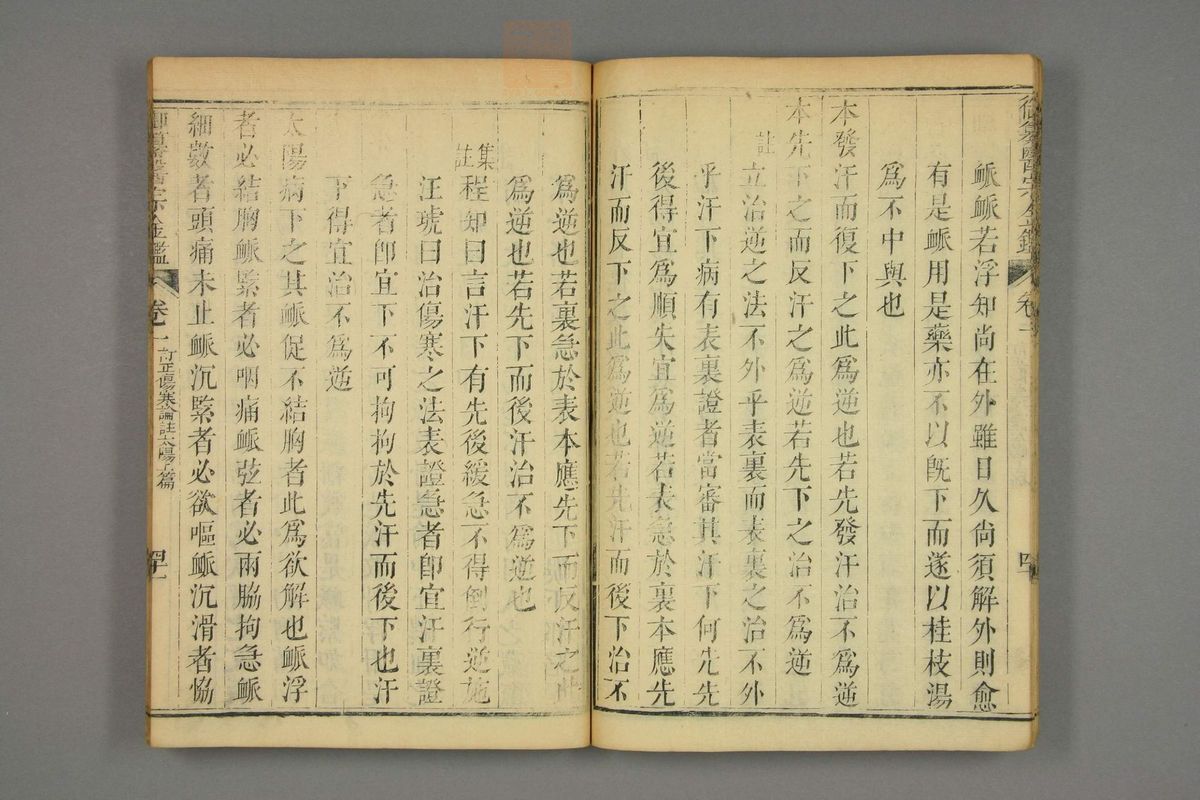 脈脈若浮知尚在外雖日久尚須解外則愈
有是脈用是藥亦不以旣下而遂以桂枝湯
爲不中與也
本發汗而復下之此爲逆也若先發汗治不爲逆
本先下之而反汗之爲逆若先下之治不爲逆
註
立治逆之法不外乎表裏而表裏之治不外
乎汗下病有表裏證者當審其汗下何先先
後得宜爲順失宜爲逆若表急於裏本應先
汗而反下之此爲逆也若先汗而後下治不
爲逆也若裏急於表本應先下而反汗之此
爲逆也若先下而後汗治不爲逆也
集註
程知曰言汗下有先後緩急不得倒行逆施
汪琥曰治傷寒之法表證急者卽宜汗裏證
急者卽宜下不可拘拘於先汗而後下也汗
下得宜治不爲逆
太陽病下之其脈促不結胸者此爲欲解也脈浮
者必結胸脈緊者必咽痛脈弦者必兩脇拘急脈
細數者頭痛未止脈沉緊者必欲嘔脈沉滑者恊
御纂醫宗金鑑
卷一
訂正傷寒論註太陽下篇